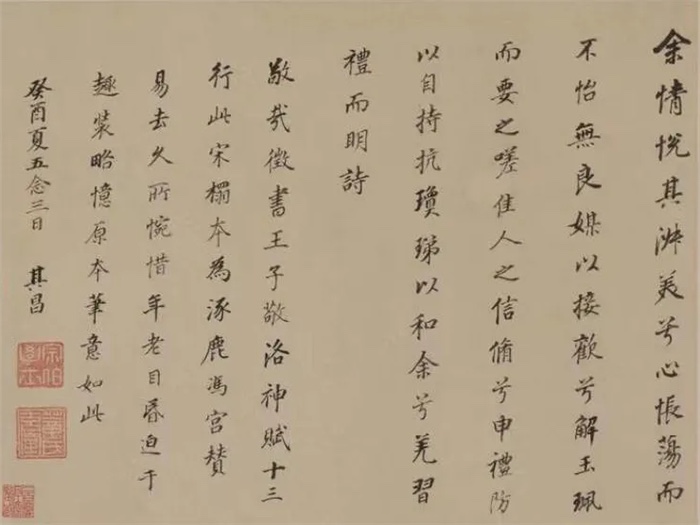 余情悅其淑美兮心悵蕩而
不怡無良媒以接歡兮解玉珮
而要之嗟佳人之信脩兮申禮防
以自持抗瓊珶以和余兮羌習
禮而明詩
敬哉徵書王子敬洛神賦十三
行此宋搨本為涿鹿馮宮贊
易去久所惋惜年老目昏迫于
趣装略憶原本筆意如此
癸酉夏五念三日 其昌
宗伯學士
董氏玄宰